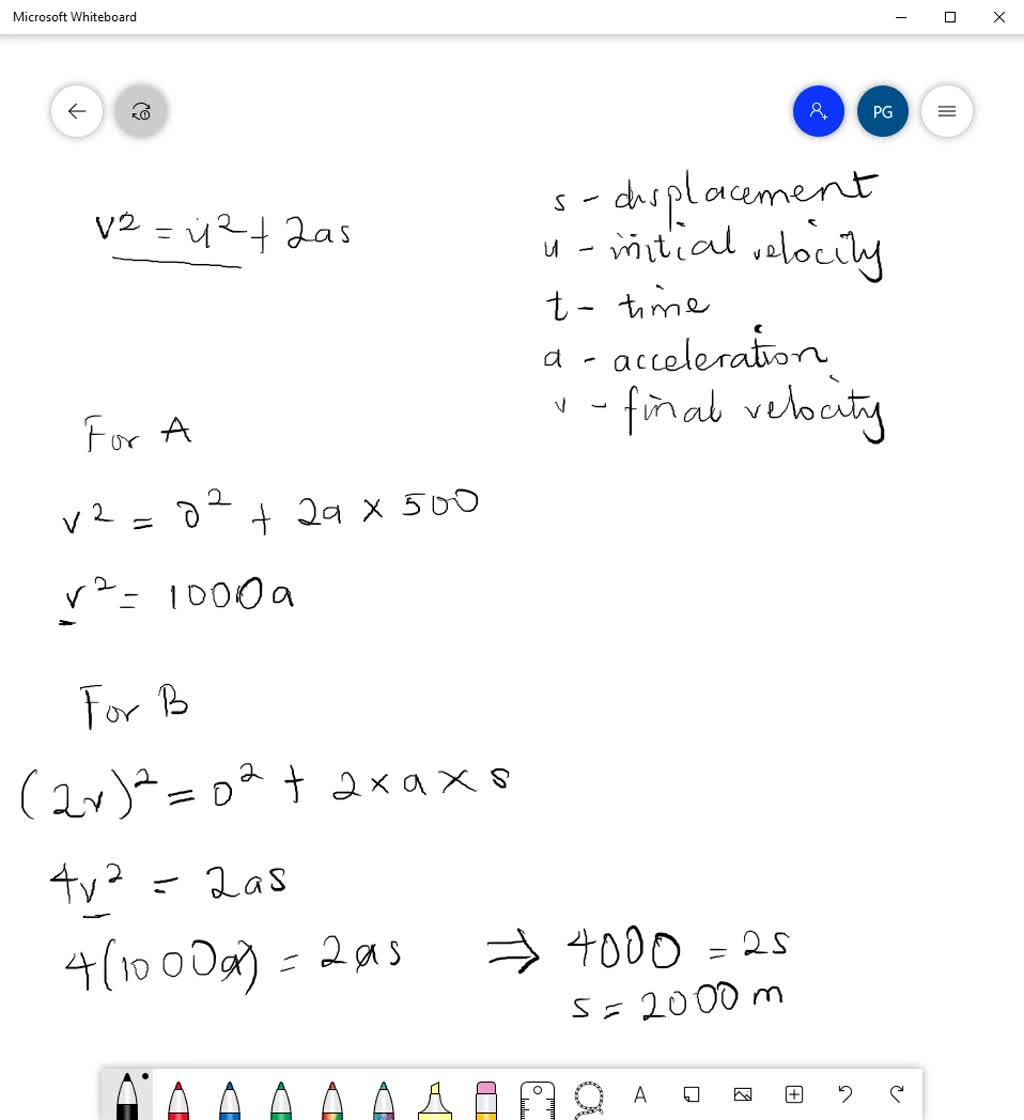 Microsoft Whiteboard
PG
v² = u² + 2as
s - displacement
u - initial velocity
t - time
a - acceleration
v - final velocity
For A
v² = 0² + 2a × 500
v² = 1000a
For B
(2v)² = 0² + 2 × a × s
4v² = 2as
4(1000a) = 2as ⇒ 4000 = 2s
s = 2000 m
A